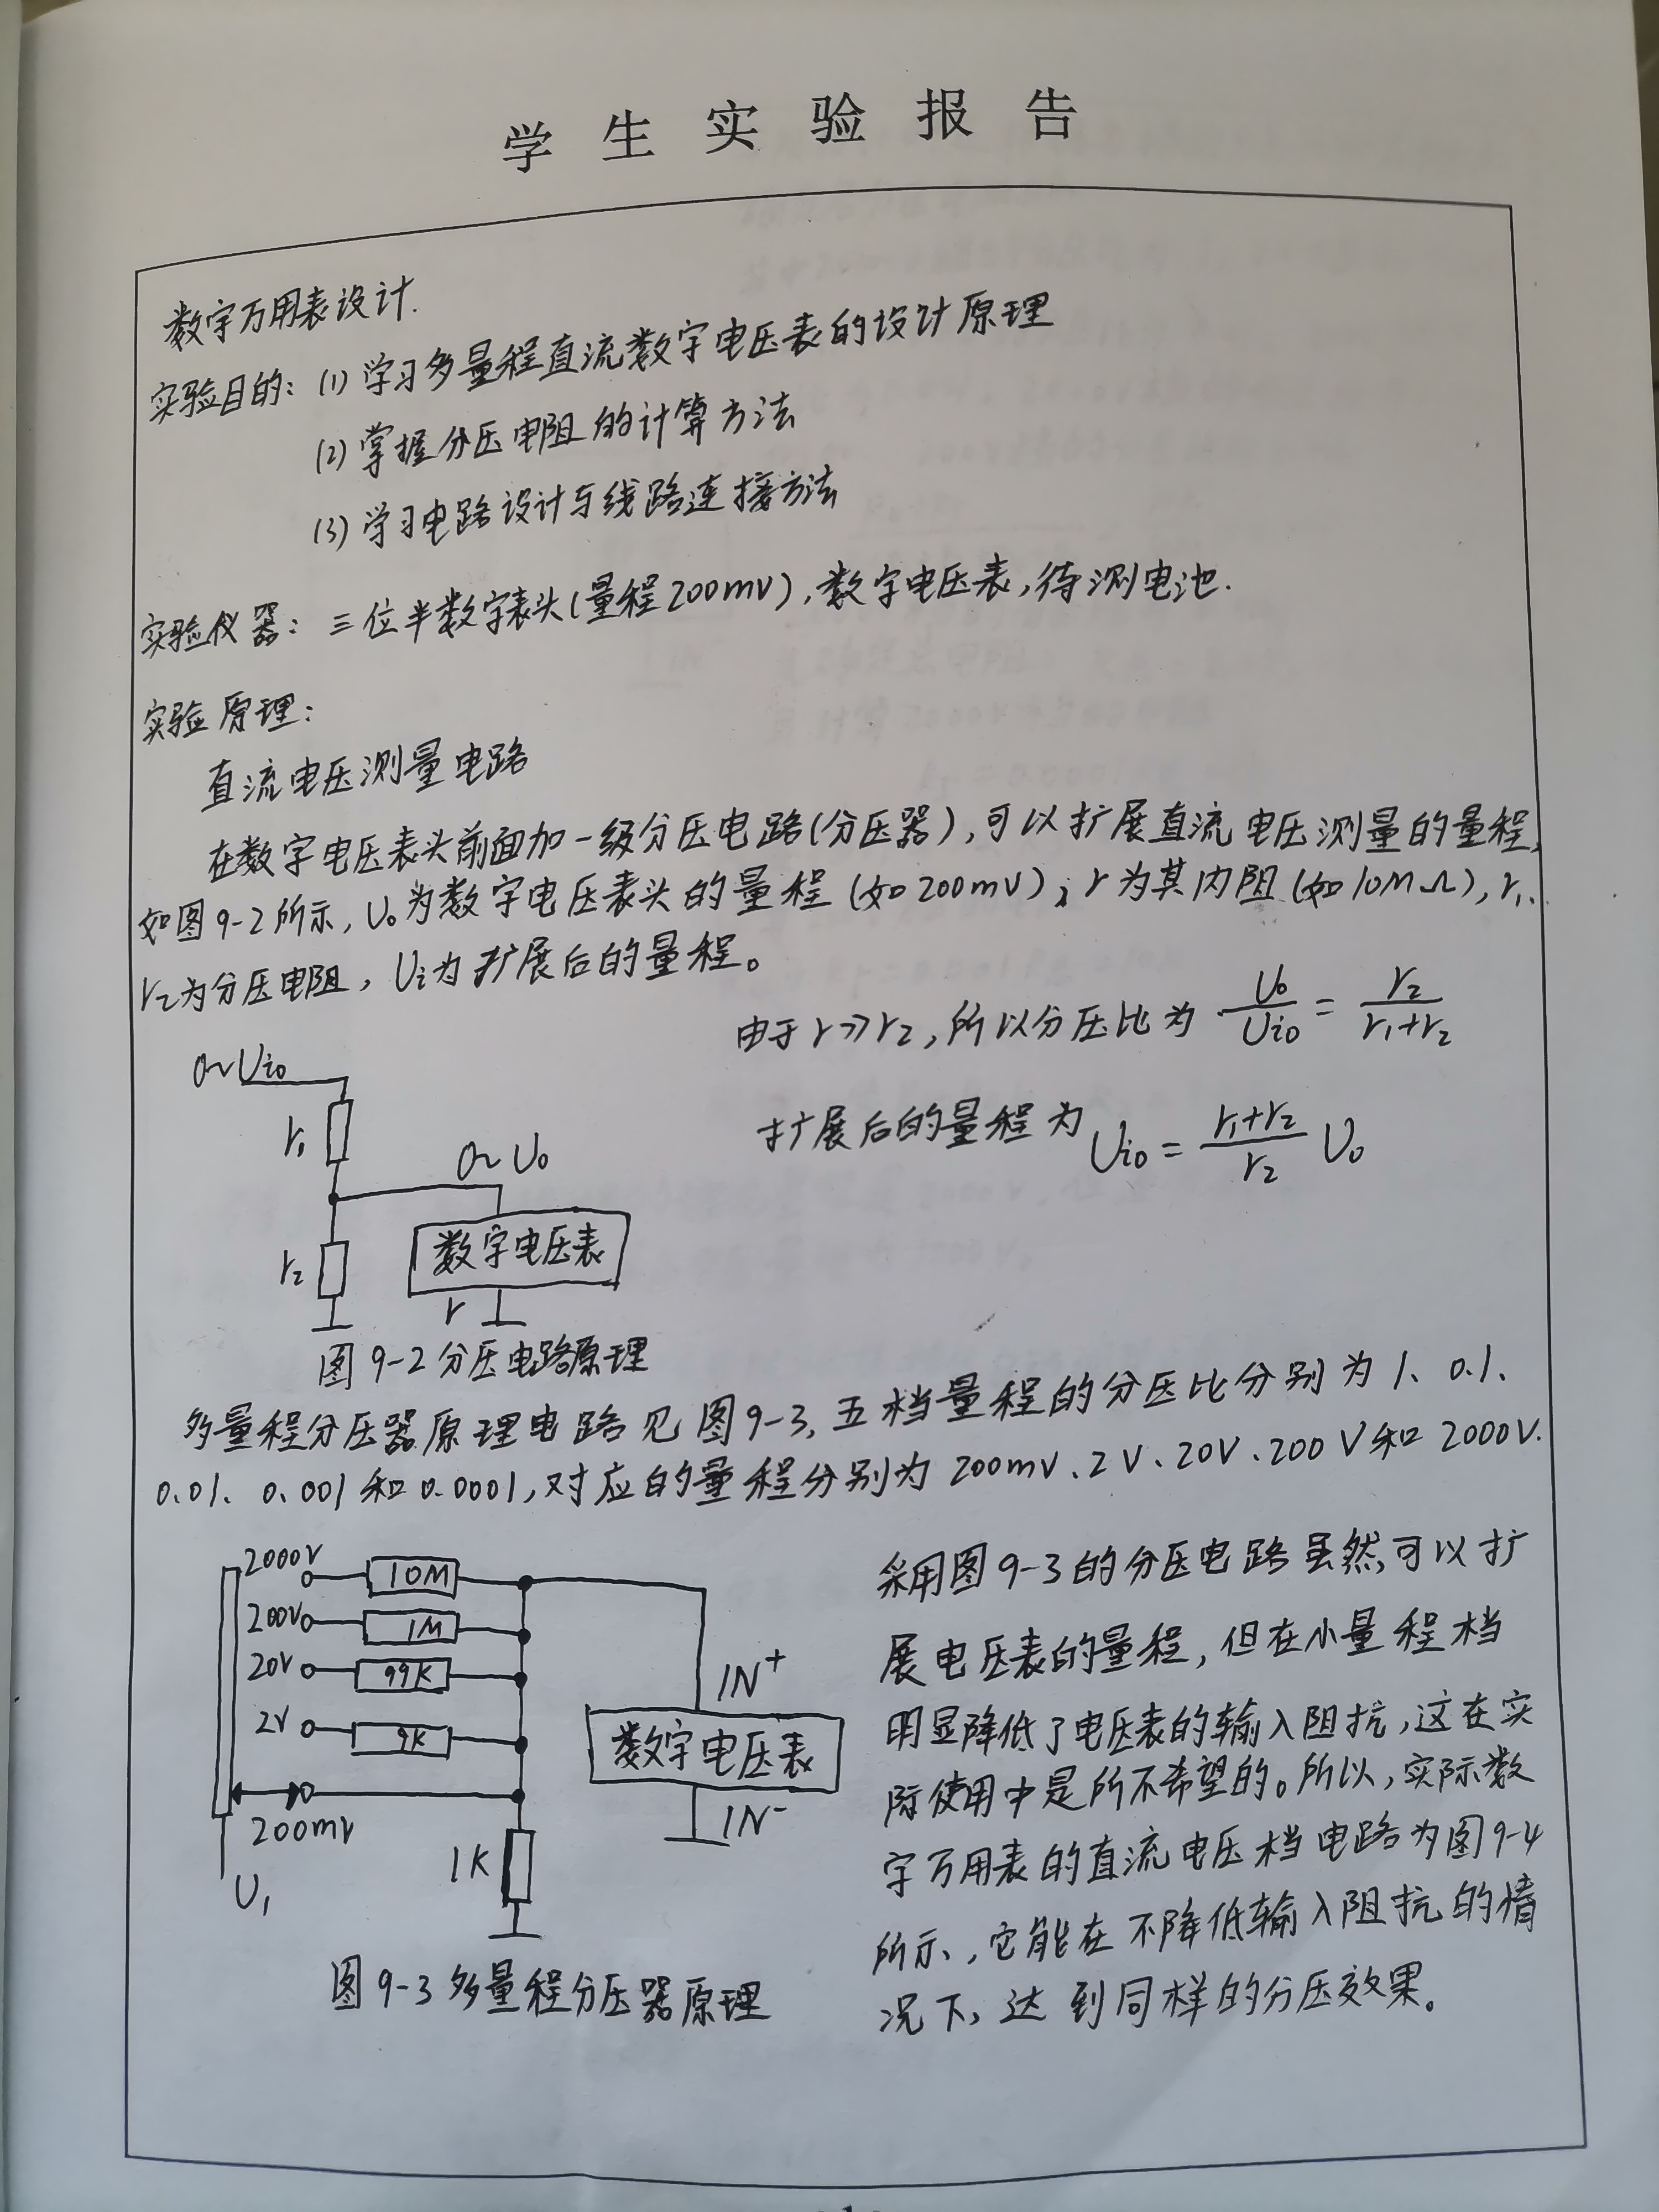 学生实验报告
数字万用表设计.
实验目的：(1) 学习多量程直流数字电压表的设计原理
(2) 掌握分压电阻的计算方法
(3) 学习电路设计与线路连接方法
实验仪器：三位半数字表头(量程200mV),数字电压表,待测电池.
实验原理：
直流电压测量电路
在数字电压表头前面加一级分压电路(分压器),可以扩展直流电压测量的量程,
如图9-2所示,U₀为数字电压表头的量程(如200mV),r为其内阻(如10MΩ),r₁、
r₂为分压电阻,Ui为扩展后的量程。
由于r≫r₂,所以分压比为 U₀/Ui₀ = r₂/(r₁+r₂)
0~Ui₀
扩展后的量程为 Ui₀ = (r₁+r₂)/r₂ U₀
r₁
0~U₀
r₂
数字电压表
r
图9-2分压电路原理
多量程分压器原理电路见图9-3,五档量程的分压比分别为1、0.1、
0.01、0.001和0.0001,对应的量程分别为200mV、2V、20V、200V和2000V.
2000V 10M
200V 1M
20V 99K
2V 9K
200mV
U₁
1K
IN⁺
数字电压表
IN⁻
图9-3多量程分压器原理
采用图9-3的分压电路虽然可以扩
展电压表的量程,但在小量程档
明显降低了电压表的输入阻抗,这在实
际使用中是所不希望的。所以,实际数
字万用表的直流电压档电路为图9-4
所示,它能在不降低输入阻抗的情
况下,达到同样的分压效果。